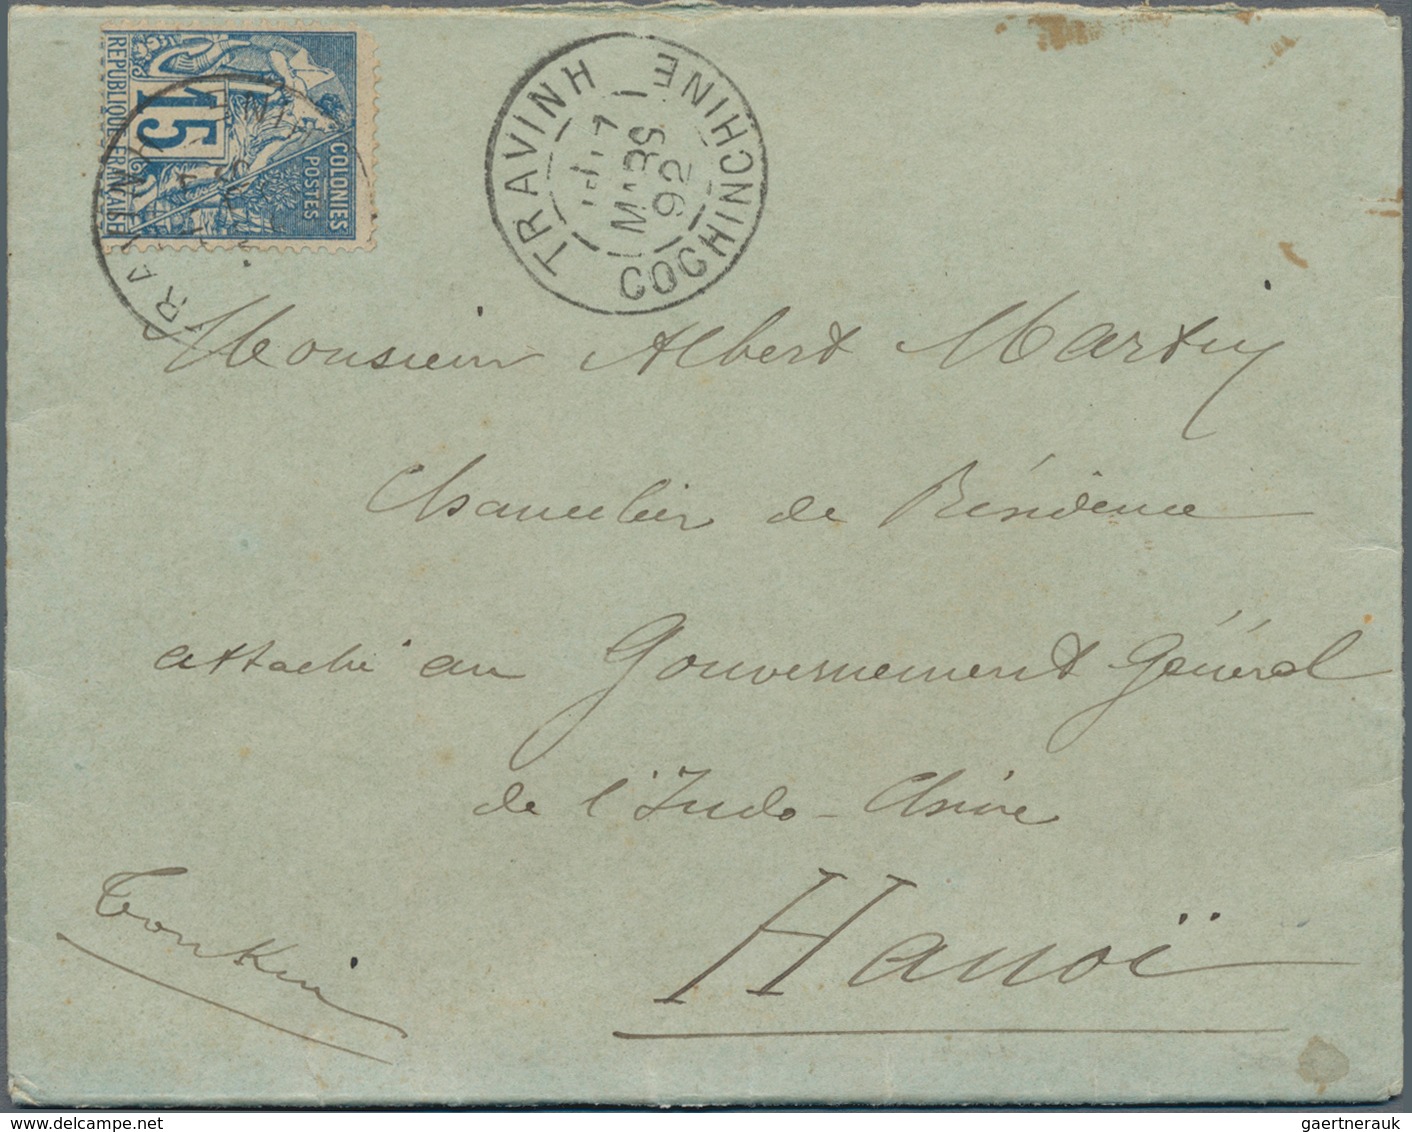 RÉPUBLIQUE FRANÇAISE
15
COLONIES
POSTES
TRAVINH COCHINCHINE
MARS
92
Monsieur Albert Marty
Chancelier de Résidence
attaché au Gouvernement Général
de l'Indo-Chine
Hanoï
Tonkin
delcampe.net
gaertnerauk